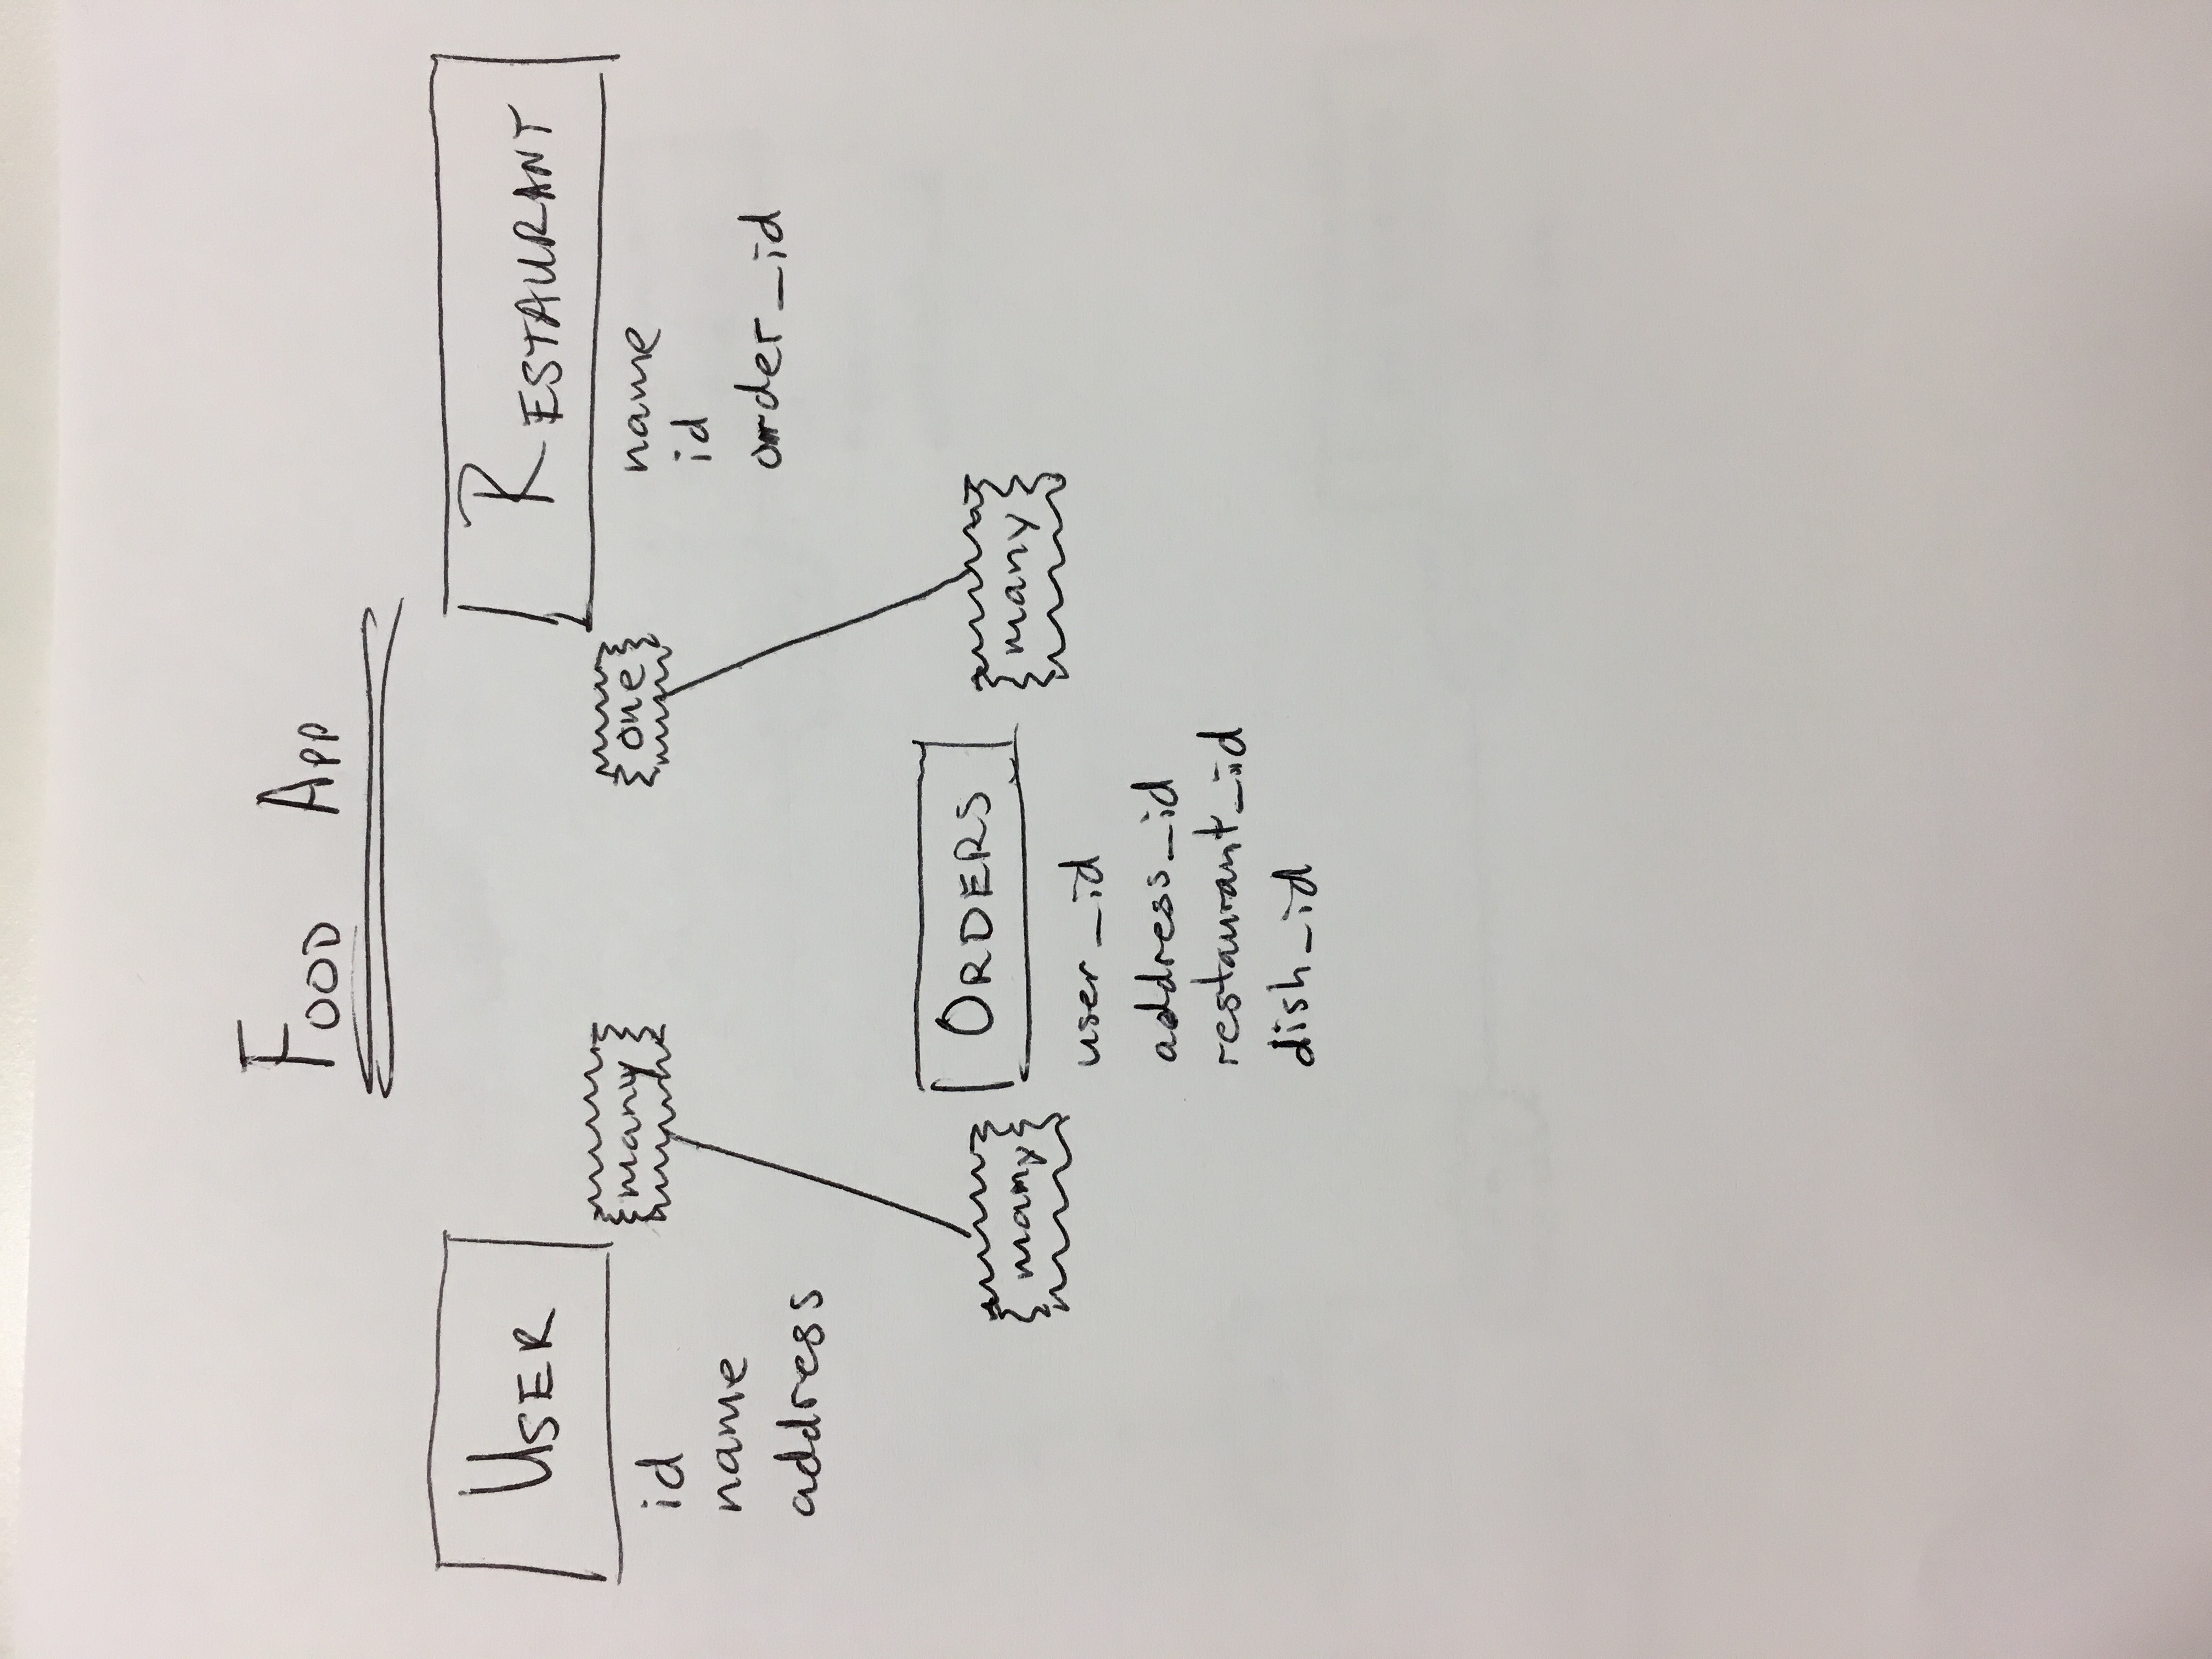 FOOD APP
USER
id
name
address
many
many
RESTAURANT
name
id
order_id
one
many
ORDERS
user_id
address_id
restaurant_id
dish_id